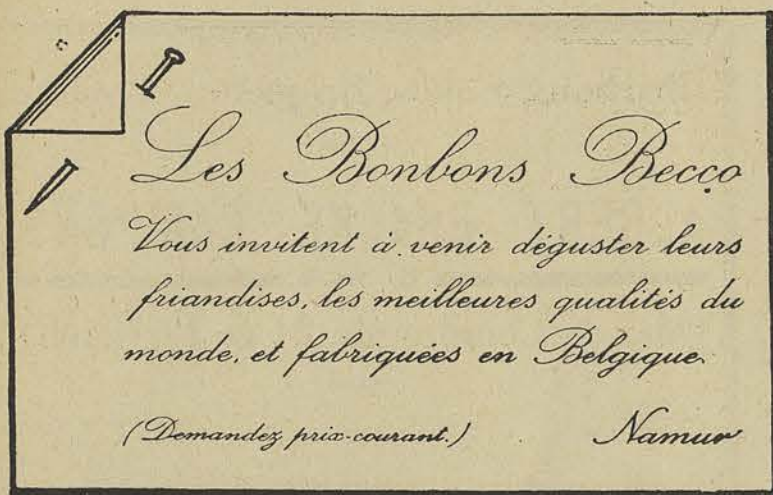 Les Bonbons Becco
Vous invitent à venir déguster leurs
friandises, les meilleures qualités du
monde, et fabriquées en Belgique
(Demandez prix-courant.) Namur